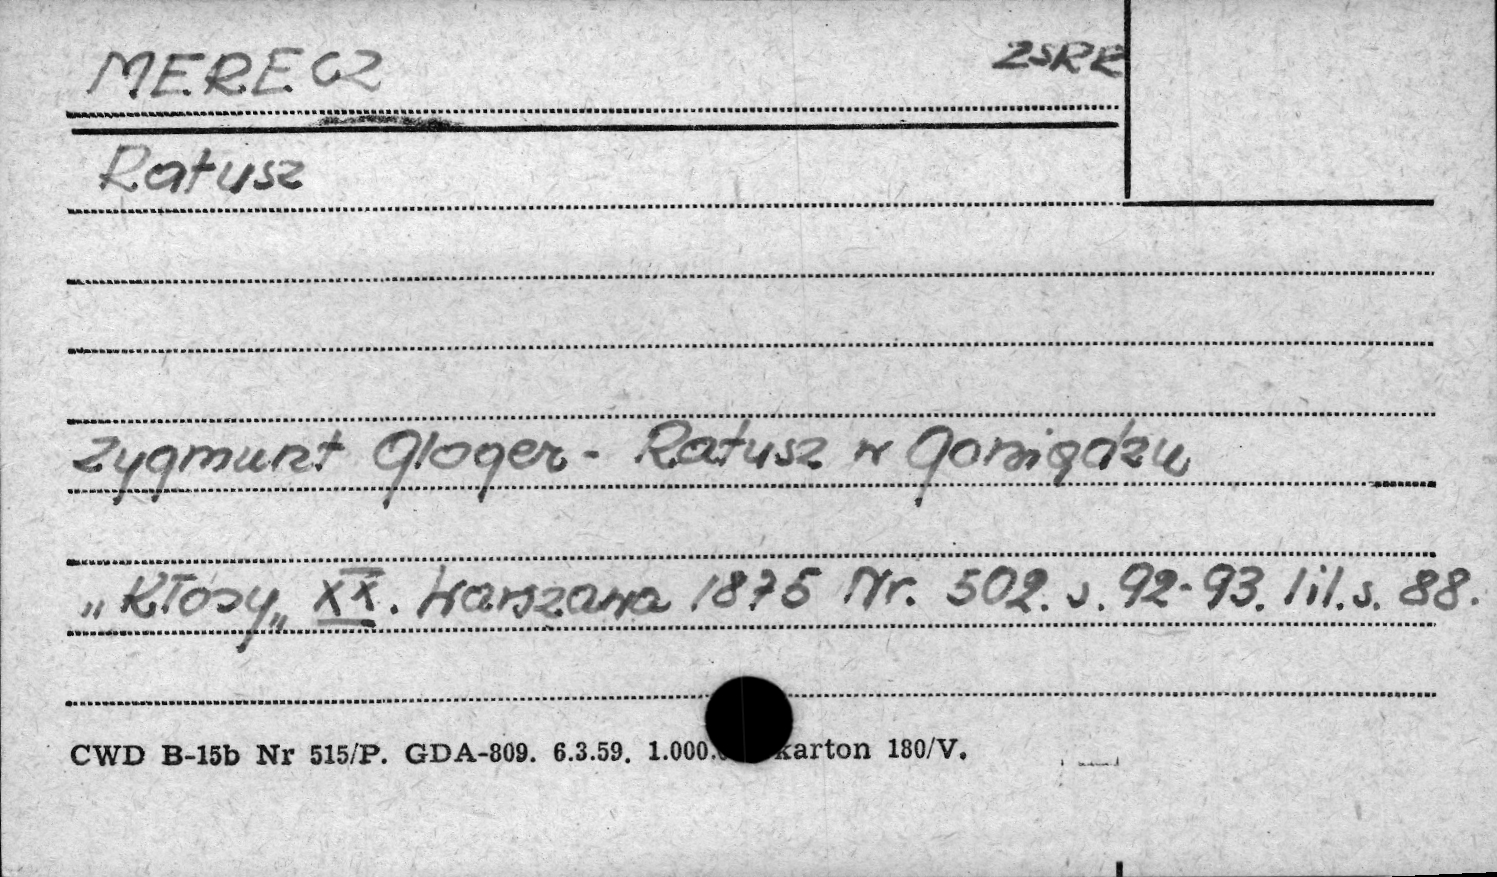 MERECZ ZSRR
Ratusz
Zygmunt Gloger - Ratusz w Goniądzu
„Kłosy„ XX. Warszawa 1875 Nr. 502. s. 92-93. lil. s. 88.
CWD B-15b Nr 515/P. GDA-809. 6.3.59. 1.000. karton 180/V.